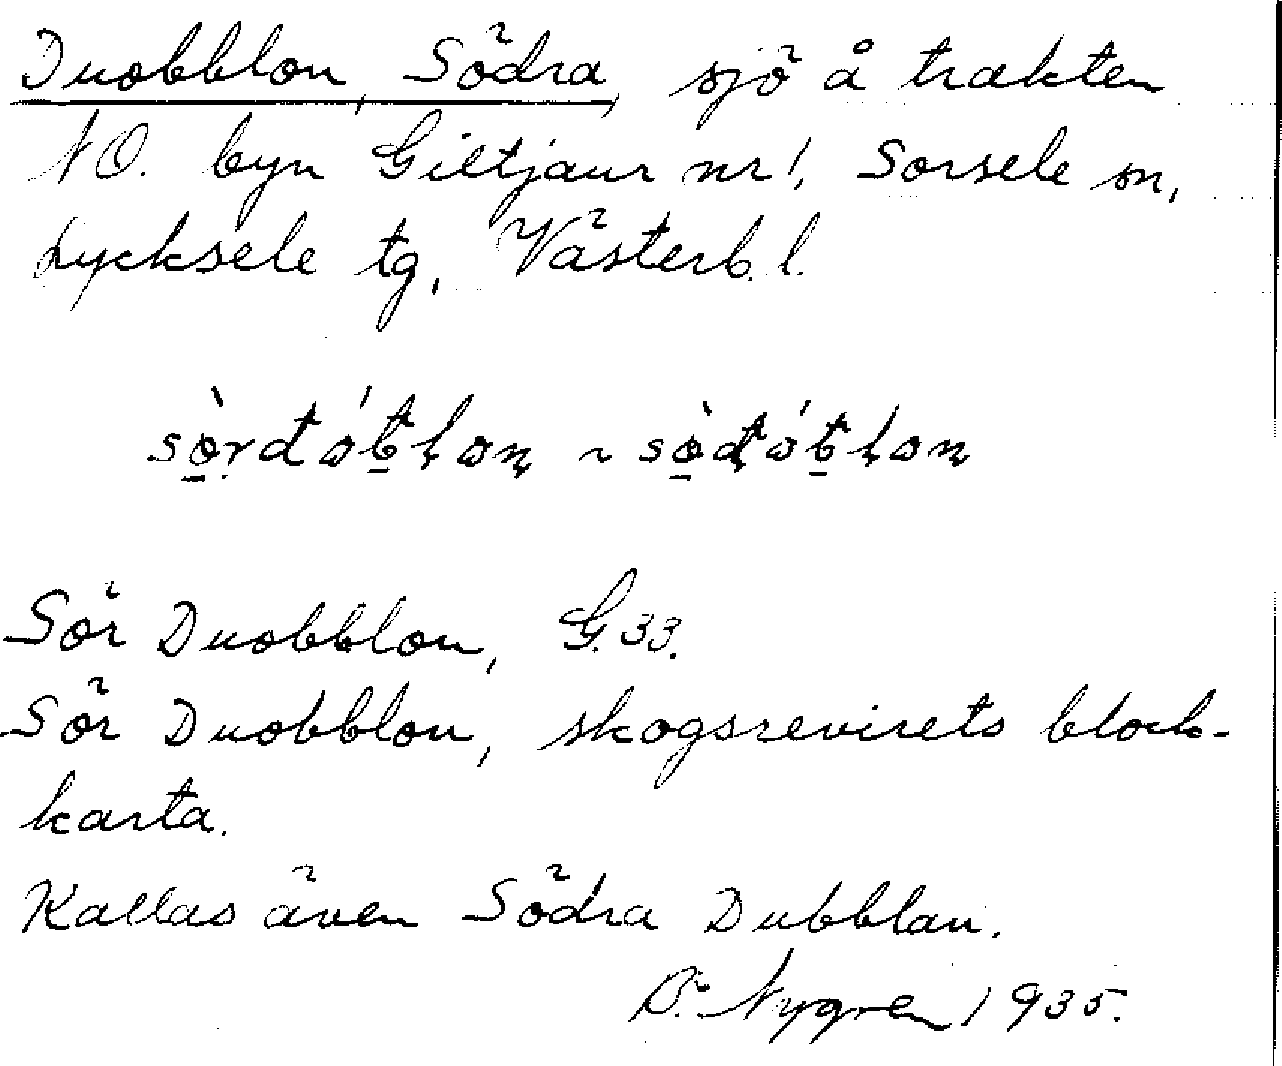 Duobblon, Södra, sjö å trakten
NO. byn Giltjaur nr 1, Sorsele sn,
Lycksele tg, Västerb. l.
Sör Duobblon, G. 33.
Sör Duobblon, skogsrevirets block-
karta.
Kallas även Södra Dubblan.
Nygren 1935.